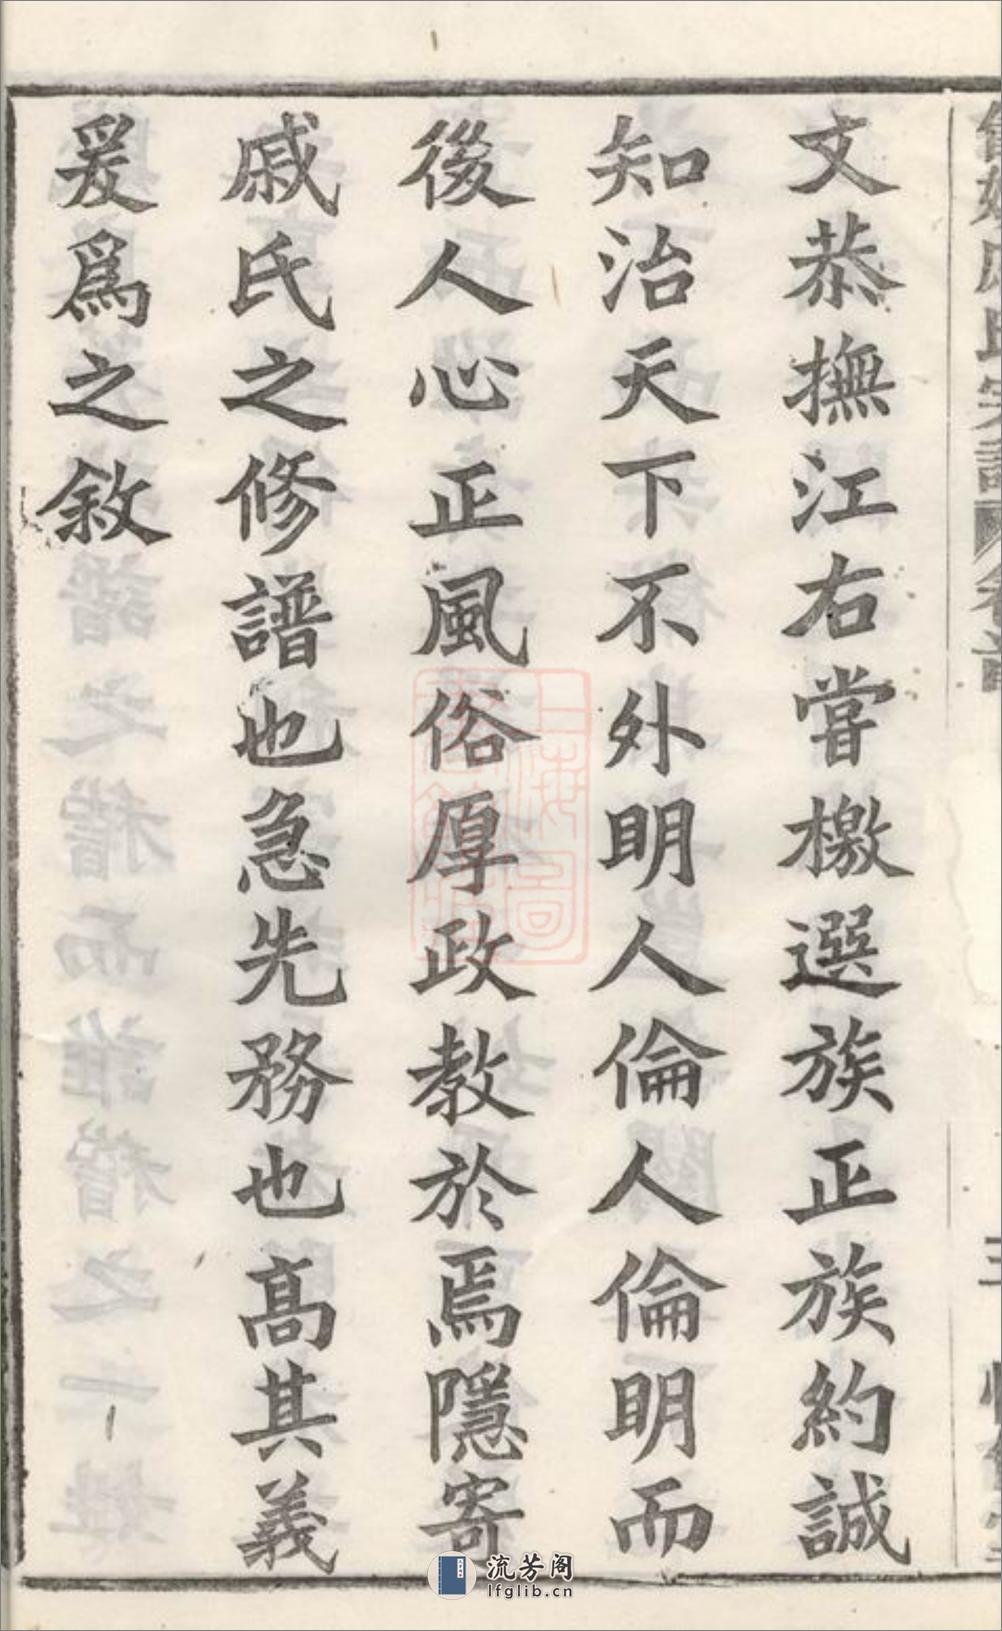 文恭撫江右嘗檄選族正族約誠
知治天下不外明人倫人倫明而
後人心正風俗厚政教於焉隱寄
戚氏之修譜也急先務也髙其義
爰爲之敘
上海圖
流芳阁
lfglib.cn